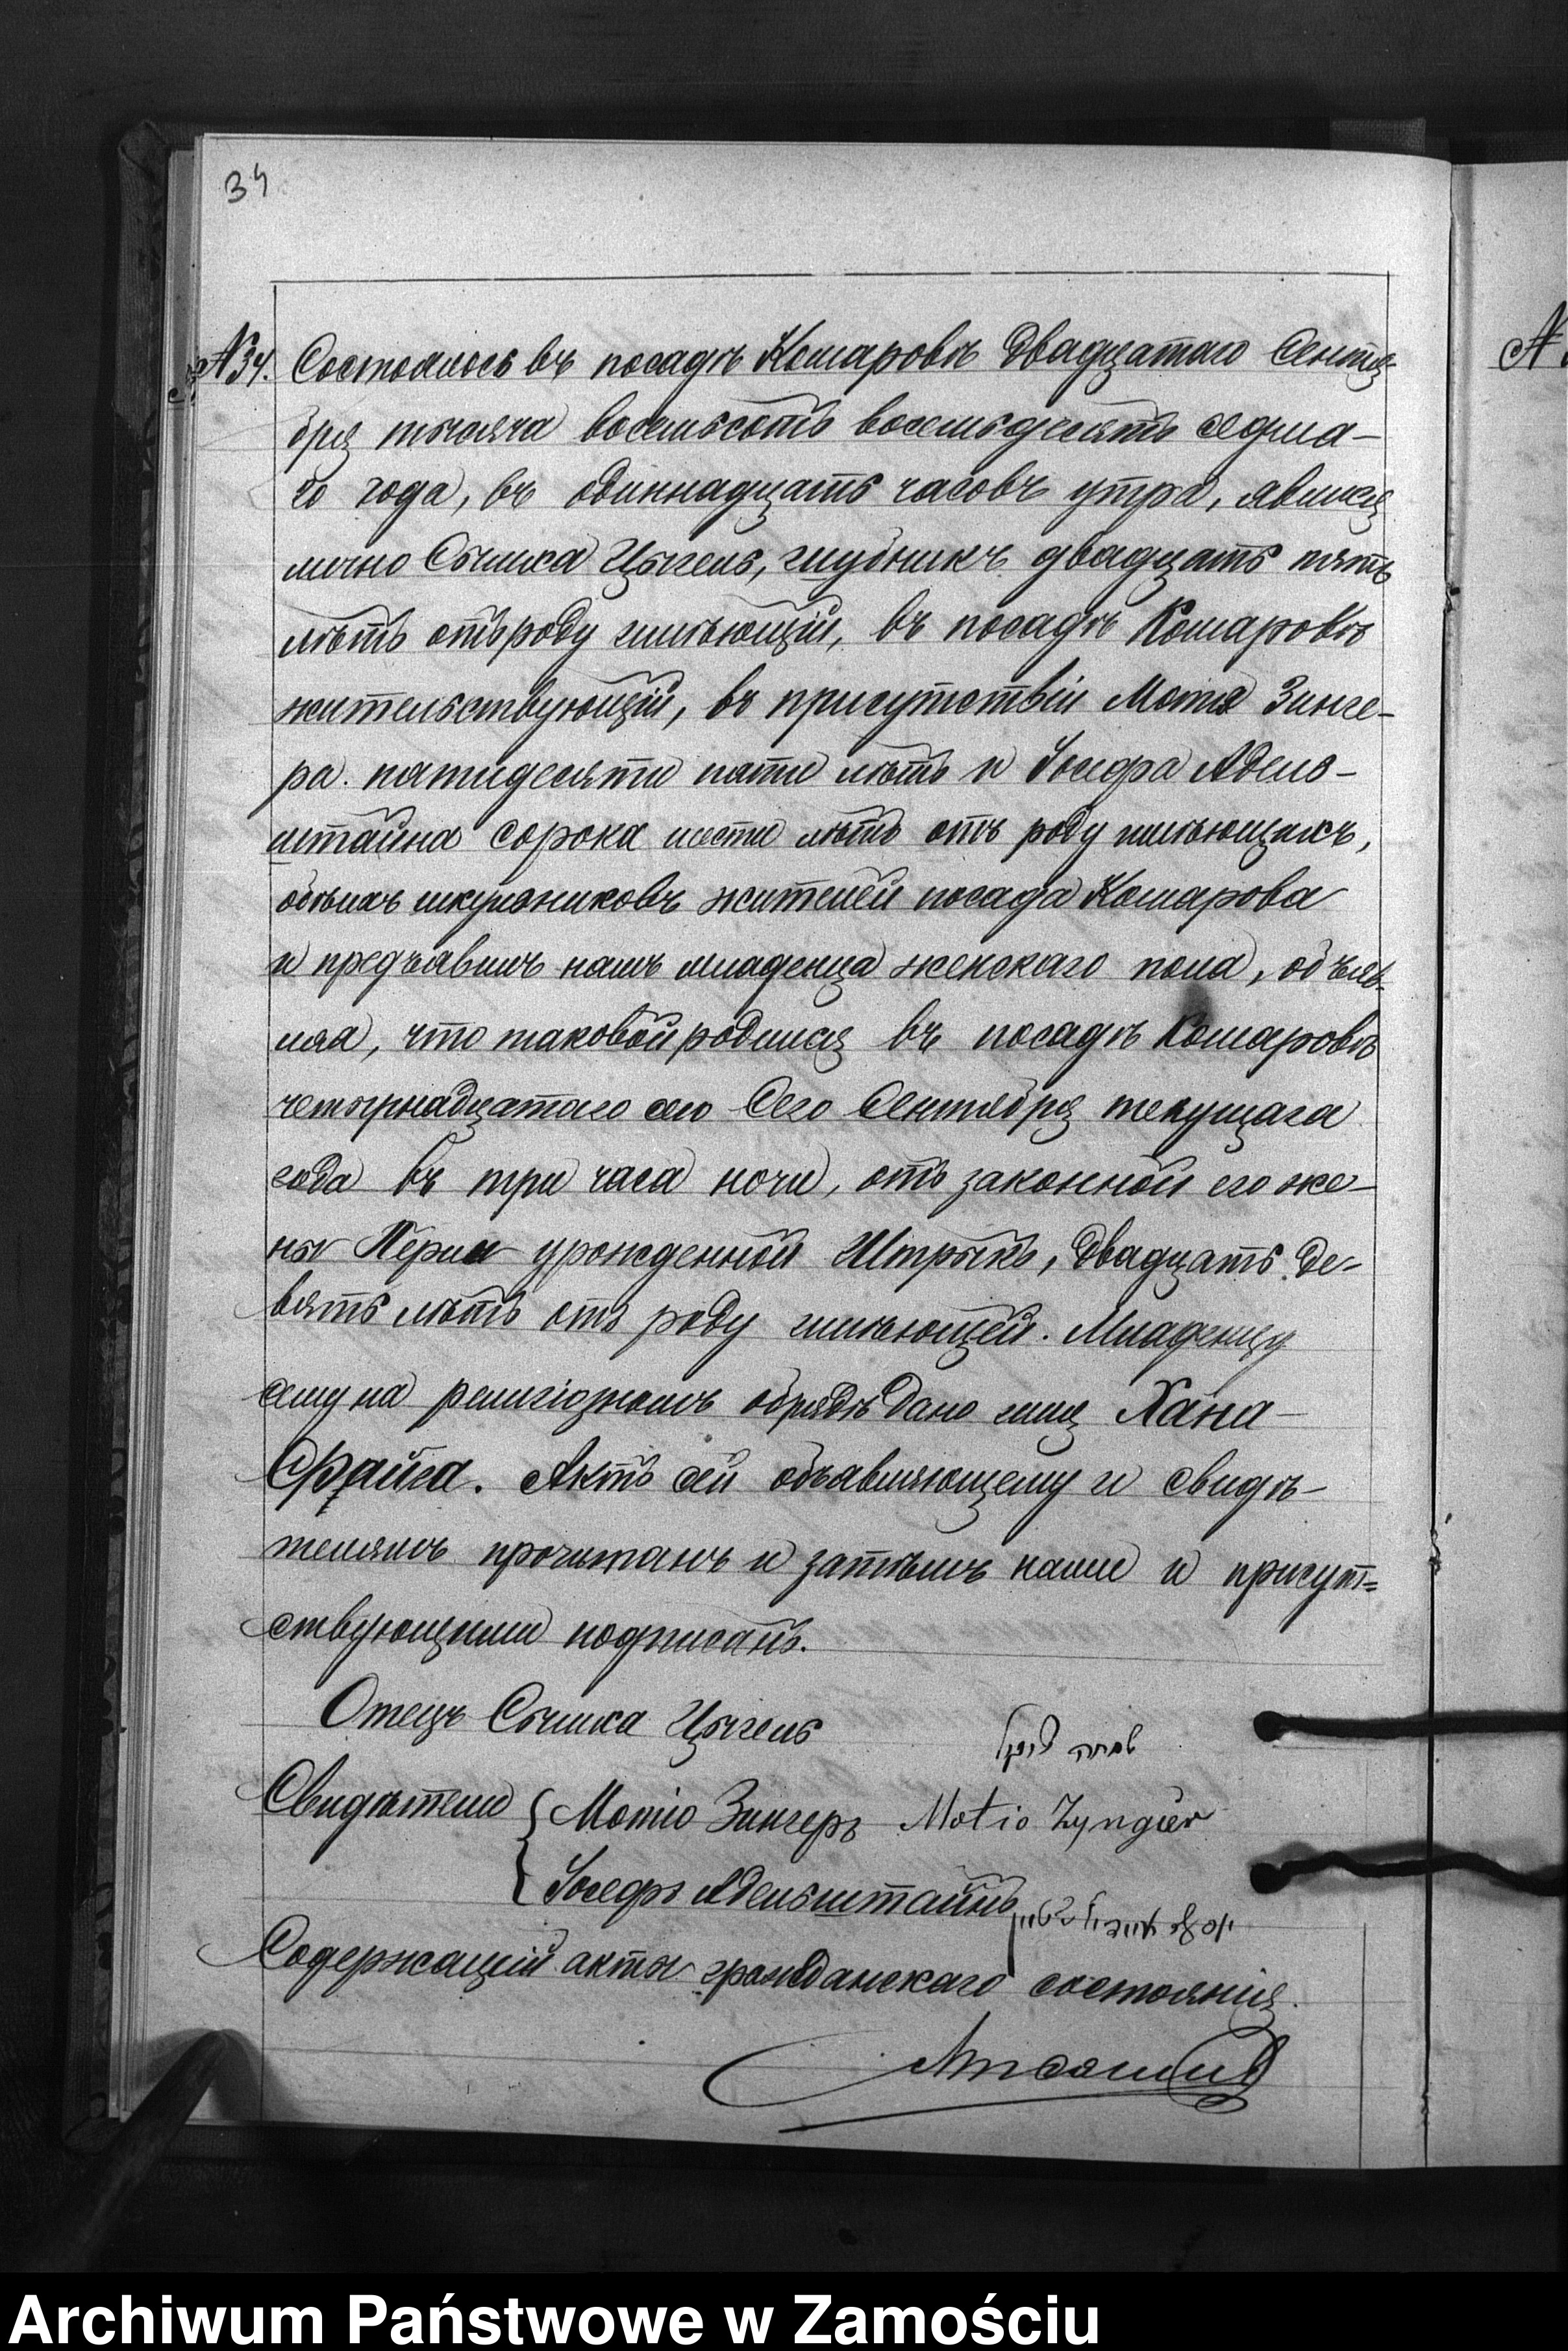 34
N 34. Состоялось въ посадѣ Комаровѣ двадцатаго Сентя-
бря тысяча восемьсотъ восемьдесятъ седма-
го года, въ одиннадцать часовъ утра, явился
лично Сымха Цыгель, двадцать пять
лѣтъ отъ роду имѣющій, въ посадѣ Комаровѣ
жительствующій, въ присутствіи Мотя Зинге-
ра пятидесяти пяти лѣтъ и Іосефа Адель-
штайна сорока шести лѣтъ отъ роду имѣющихъ,
обѣихъ шкульниковъ жителей посада Комарова
и предъявилъ намъ младенца женскаго пола, объяв-
ляя, что таковой родился въ посадѣ Комаровѣ
четырнадцатаго сего Сентября текущага
года въ три часа ночи, отъ законной его же-
ны Перли урожденной Штрыкъ, двадцать де-
вять лѣтъ отъ роду имѣющей. Младенцу
сему на религіозномъ обрядѣ дано имя Хана-
Фрайга. Актъ сей объявляющему и свидѣ-
телямъ прочитанъ и затѣмъ нами и присут=
ствующими подписанъ.
Отецъ Сымха Цыгель
שמחה ציגל
Свидѣтели { Мотіо Зингеръ Motio Zyngier
Іосефъ Адельштайнъ
Содержащій акты гражданскаго состоянія.
N
Archiwum Państwowe w Zamościu